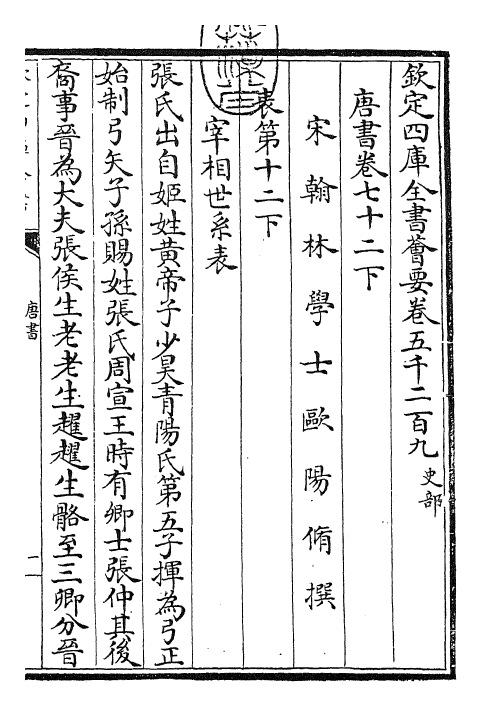 欽定四庫全書薈要卷五千二百九 史部
唐書卷七十二下
宋翰林學士歐陽脩撰
表第十二下
宰相世系表
張氏出自姬姓黃帝子少昊青陽氏第五子揮為弓正
始制弓矢子孫賜姓張氏周宣王時有卿士張仲其後
裔事晉為大夫張侯生老老生趯趯生骼至三卿分晉
唐書
一